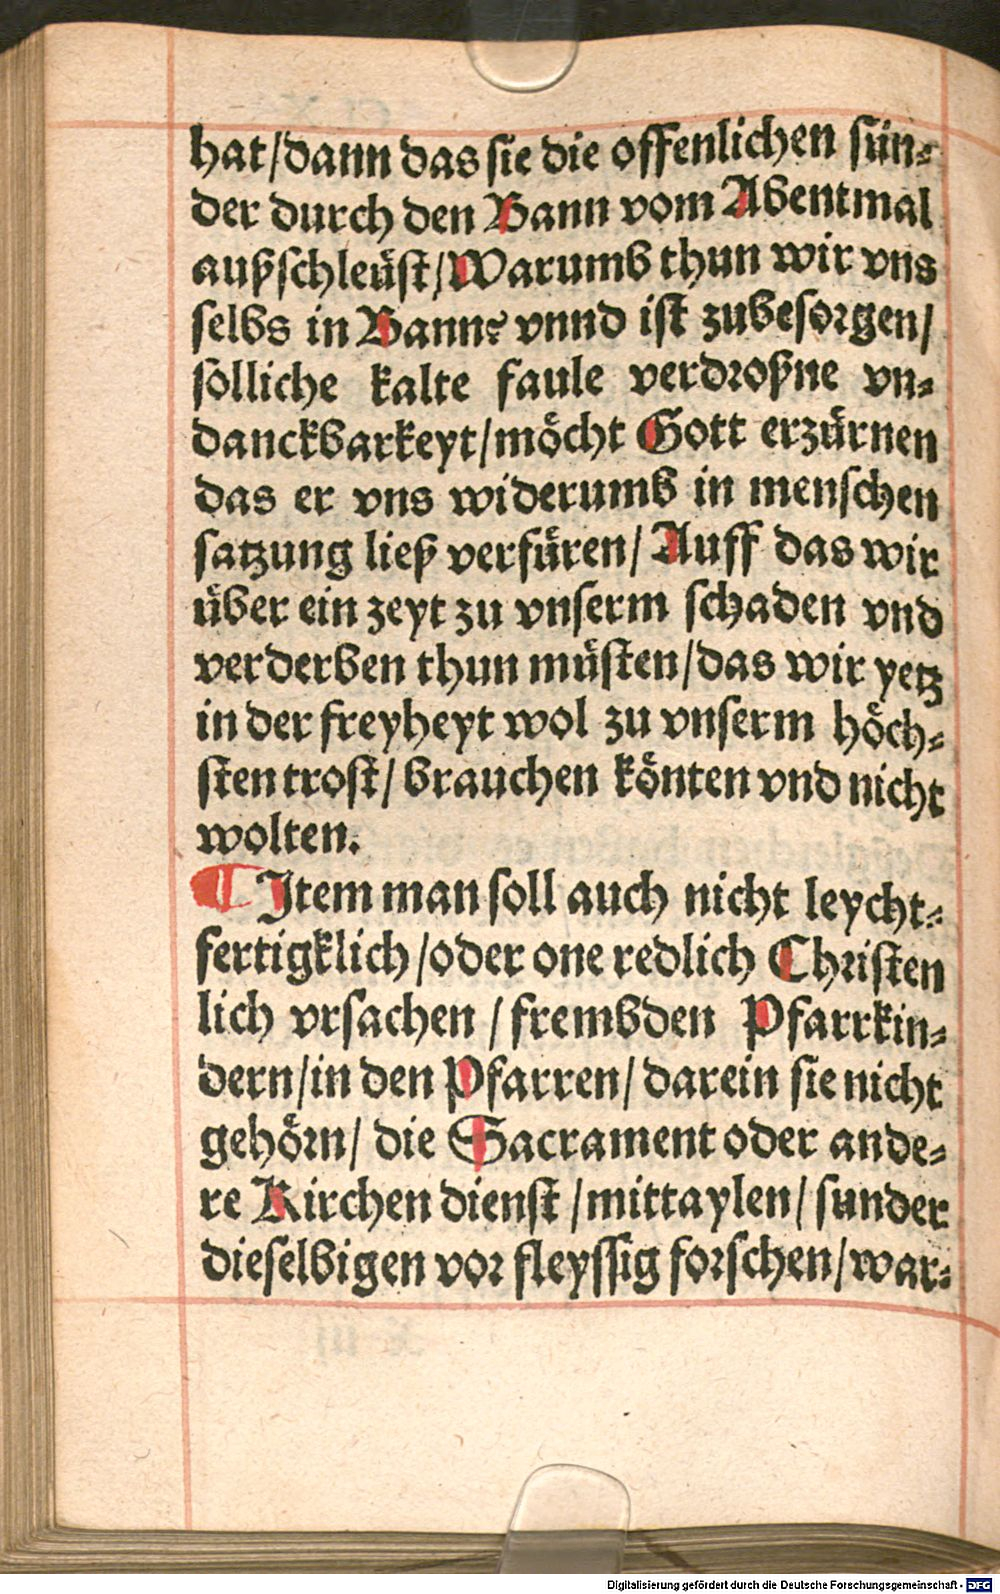 hat/dann das sie die offenlichen sün⸗
der durch den Bann vom Abentmal
außschleüst/Warumb thun wir vns
selbs in Bann? vnnd ist zubesorgen/
sölliche kalte faule verdroßne vn⸗
danckbarkeyt/möcht Gott erzürnen
das er vns widerumb in menschen
satzung ließ verfüren/ Auff das wir
über ein zeyt zu vnserm schaden vnd
verderben thun müsten/das wir yetz
in der freyheyt wol zu vnserm höch⸗
sten trost/ brauchen könten vnd nicht
wolten.
¶ Item man soll auch nicht leycht⸗
fertigklich/oder one redlich Christen
lich vrsachen / frembden Pfarrkin⸗
dern/in den Pfarren/ darein sie nicht
gehörn/ die Sacrament oder ande⸗
re Kirchen dienst /mittaylen/ sunder
dieselbigen vor fleyssig forschen/war⸗
Digitalisierung gefördert durch die Deutsche Forschungsgemeinschaft - DFG